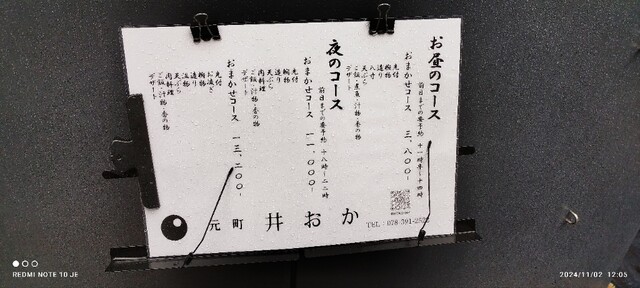 お昼のコース
前日までの要予約 十一時半～十四時
おまかせコース 三、八〇〇-
先付
椀物
造り
八寸
天ぷら
ご飯・煮魚・汁物・香の物
デザート
夜のコース
前日までの要予約 十八時～二二時
おまかせコース 一一、〇〇〇-
先付
椀物
造り
天ぷら
肉料理
ご飯・汁物・香の物
デザート
おまかせコース 一三、二〇〇-
先付
お凌ぎ
椀物
造り
温物
天ぷら
肉料理
ご飯・汁物・香の物
デザート
元町 井おか
TEL：078-391-2522
REDMI NOTE 10 JE
2024/11/02 12:05